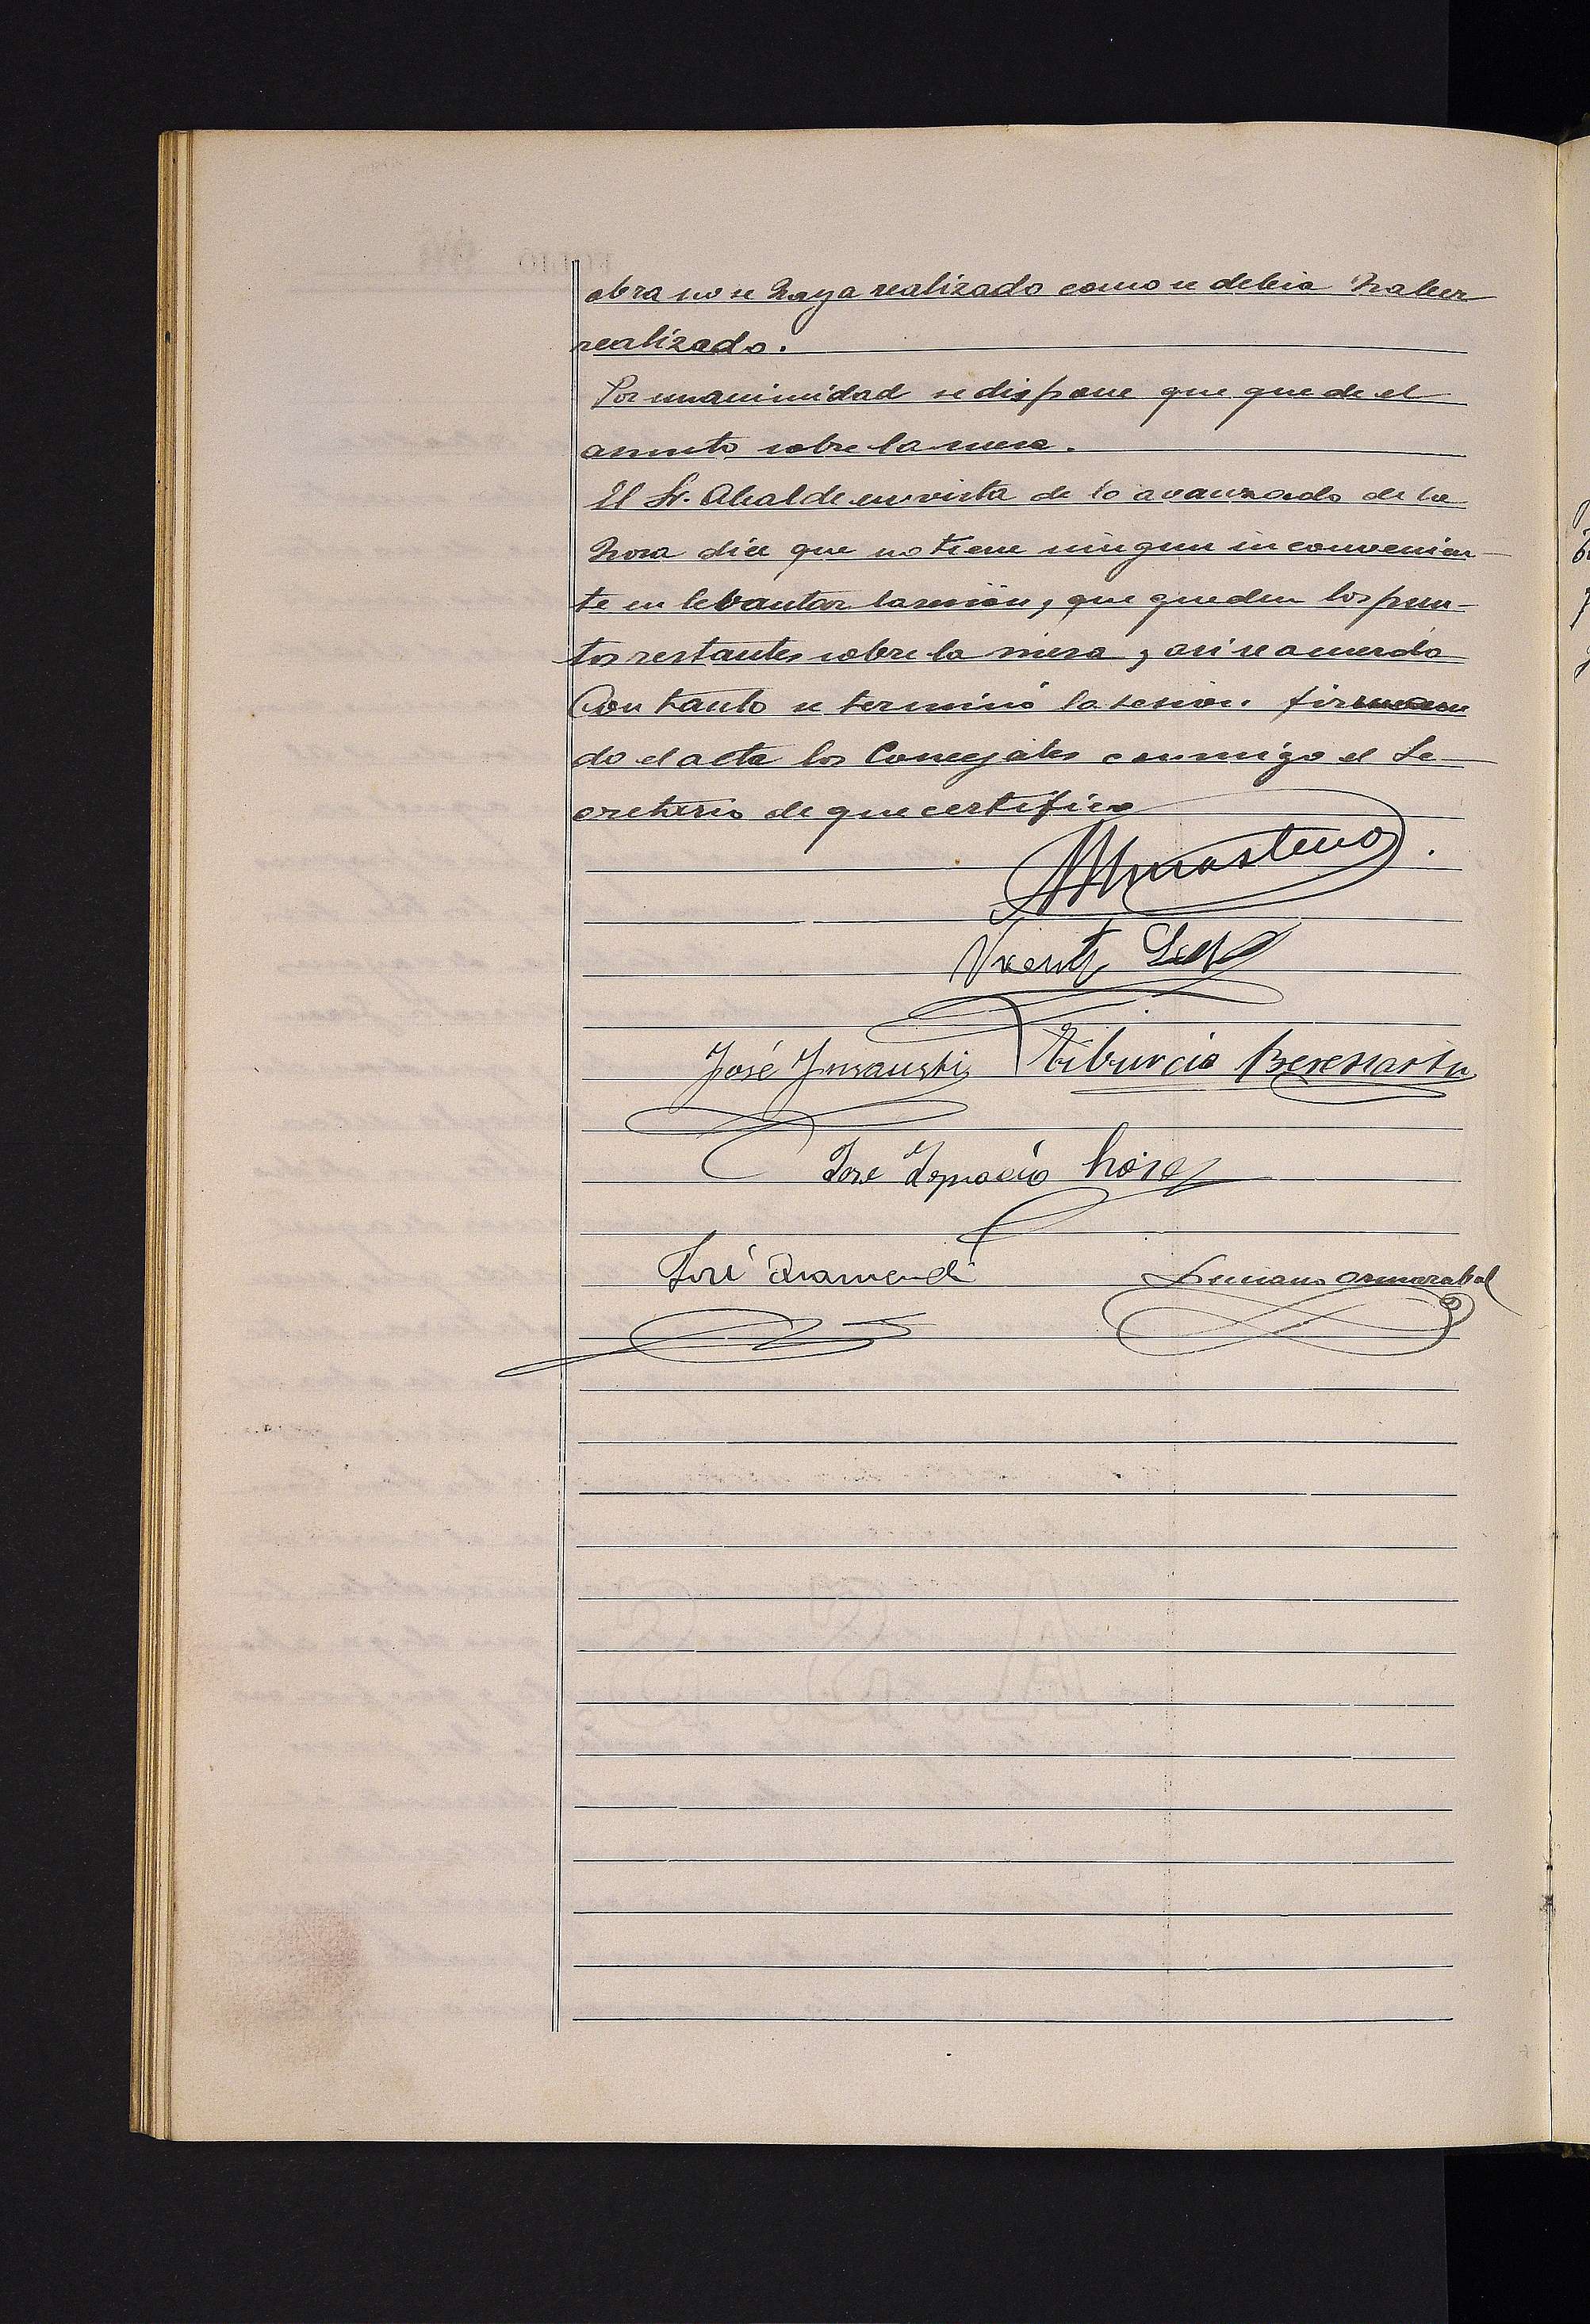 obra no se haya realizado como se debia haber
realizado.
Por unanimidad se dispone que quede el
asunto sobre la mesa.
El Sr. Alcalde en vista de lo avanzado de la
hora dice que no tiene ningun inconvenien-
te en levantar la sesión, que queden los pun-
tos restantes sobre la mesa, asi se acuerda
Con tanto se terminó la sesion. firman
do el acta los Concejales conmigo el Se-
cretario de que certifico
Vicente
José Insausti Tiburcio Beresiartu
Jose Ignacio
José Aramendi Luciano